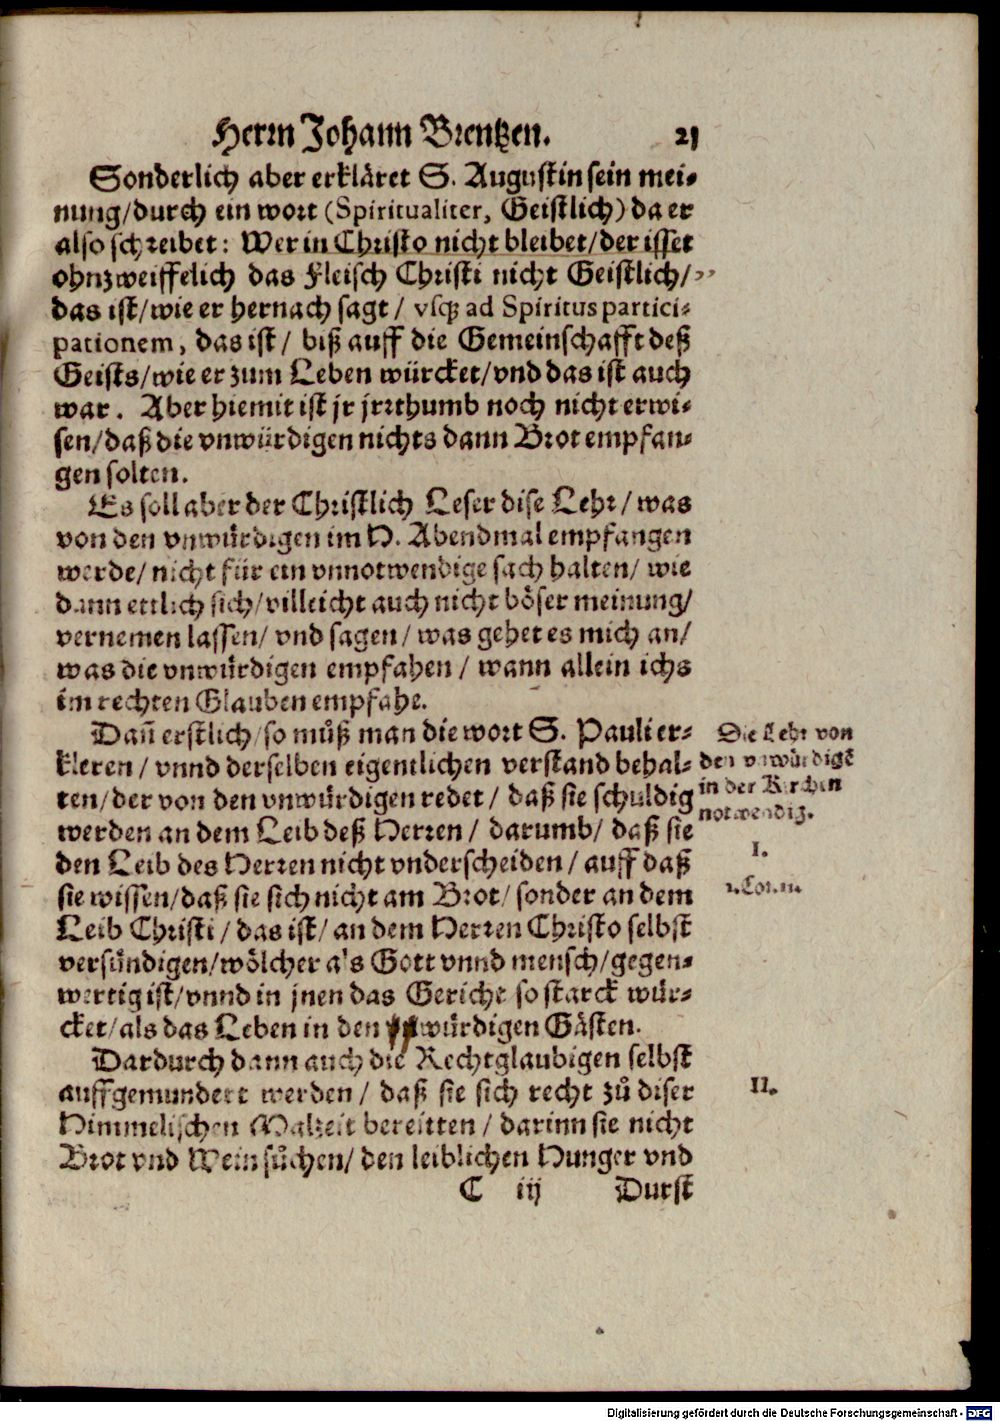 Herrn Johann Brentzen. 21
Sonderlich aber erkläret S. Augustin sein mei-
nung/durch ein wort (Spiritualiter, Geistlich) da er
also schreibet: Wer in Christo nicht bleibet/der isset
ohnzweiffelich das Fleisch Christi nicht Geistlich/
das ist/wie er hernach sagt/ vsq; ad Spiritus partici-
pationem, das ist/ biß auff die Gemeinschafft deß
Geists/wie er zum Leben würcket/vnd das ist auch
war. Aber hiemit ist jr jrrthumb noch nicht erwi-
sen/daß die vnwürdigen nichts dann Brot empfan-
gen solten.
Es soll aber der Christlich Leser dise Lehr/ was
von den vnwürdigen im H. Abendmal empfangen
werde/ nicht für ein vnnotwendige sach halten/ wie
dann ettlich sich/villeicht auch nicht böser meinung/
vernemen lassen/ vnd sagen/ was gehet es mich an/
was die vnwürdigen empfahen/ wann allein ichs
im rechten Glauben empfahe.
Dañ erstlich/so můß man die wort S. Pauli er-
kleren/ vnnd derselben eigentlichen verstand behal-
ten/der von den vnwürdigen redet/ daß sie schuldig
werden an dem Leib deß Herren/ darumb/ daß sie
den Leib des Herren nicht vnderscheiden/ auff daß
sie wissen/daß sie sich nicht am Brot/ sonder an dem
Leib Christi/ das ist/ an dem Herren Christo selbst
versündigen/wölcher als Gott vnnd mensch/gegen-
wertig ist/vnnd in jnen das Gericht so starck wür-
cket/als das Leben in den würdigen Gästen.
Dardurch dann auch die Rechtglaubigen selbst
auffgemundert werden/ daß sie sich recht zů diser
Himmelischen Malzeit bereitten/ darinn sie nicht
Brot vnd Wein sůchen/ den leiblichen Hunger vnd
C iij Durst
Die Lehr von
den vnwürdigẽ
in der Kirchen
notwendig.
I.
1. Cor. 11.
II.
Digitalisierung gefördert durch die Deutsche Forschungsgemeinschaft - DFG